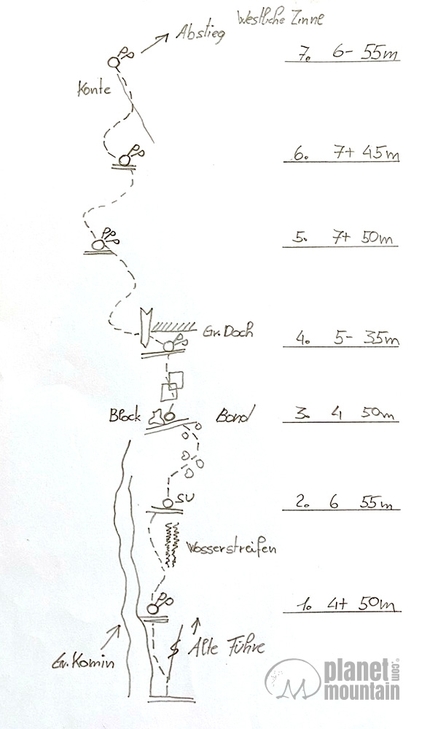 Westliche Zinne
Abstieg
7. 6- 55m
Konte
6. 7+ 45m
5. 7+ 50m
Gr. Doch
4. 5- 35m
Block
Bond
3. 4 50m
SU
2. 6 55m
Wosserstreifen
1. 4+ 50m
Alte Führe
Gr. Komin
planet
mountain
.com